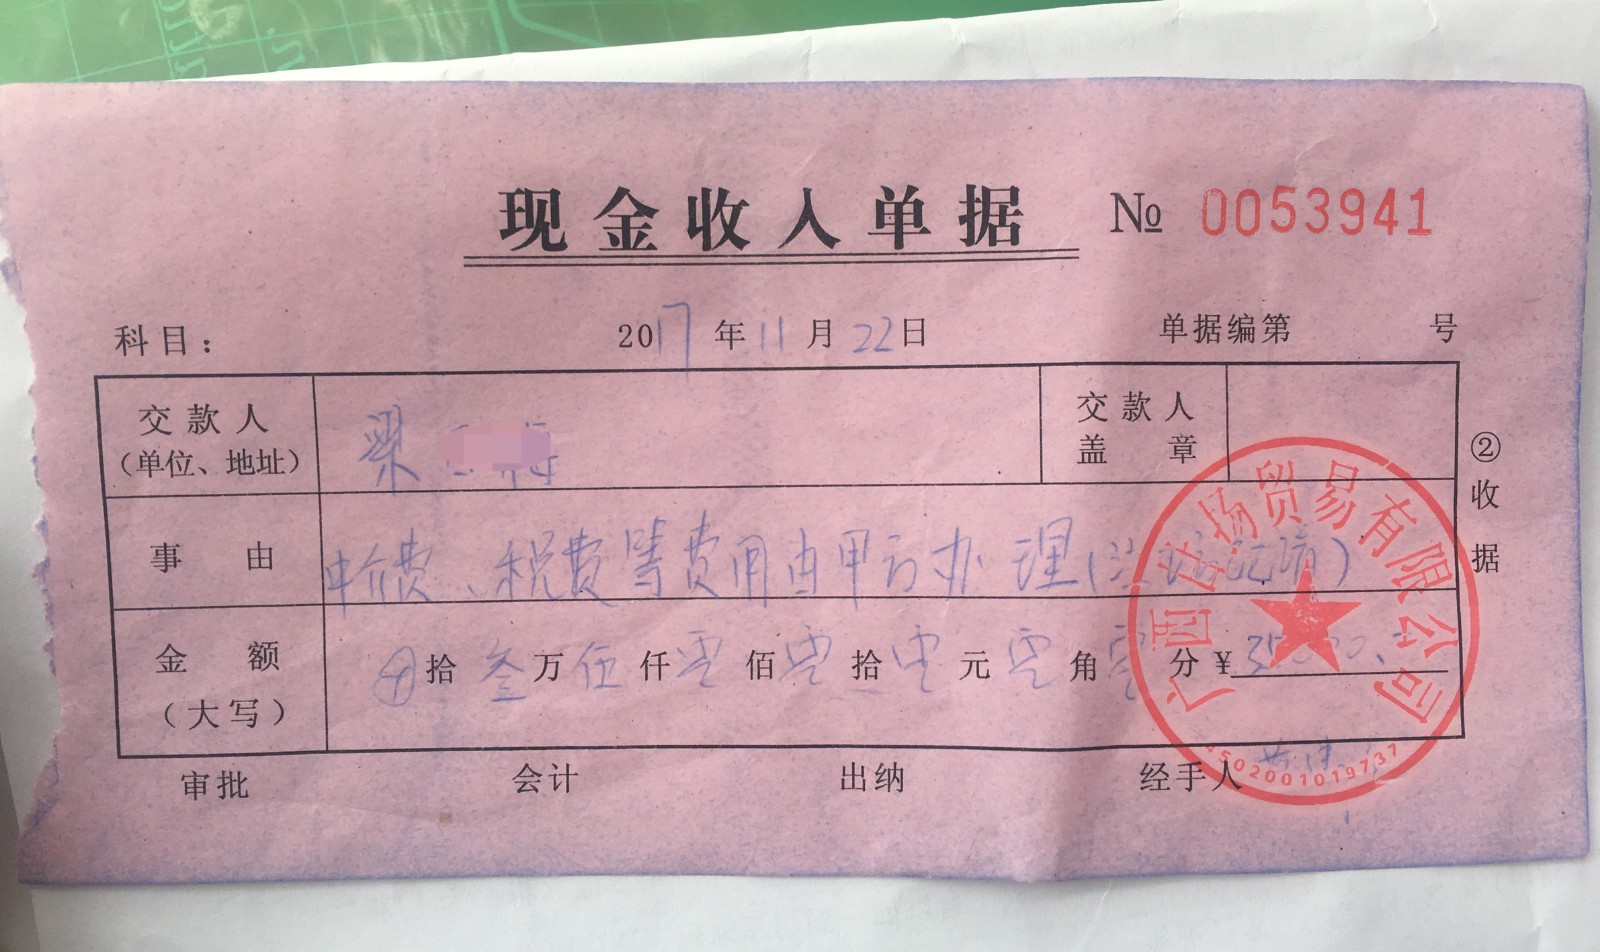 现金收入单据 № 0053941
科目： 2017年11月22日 单据编第 号
交款人 梁 交款人
（单位、地址） 盖章
② 收据
事由 中介费、税费等费用由甲方办理(
金额 ⊕拾叁万伍仟零佰零拾零元零角零分￥35000.
（大写）
审批 会计 出纳 经手人
广西 扬贸易有限公司
4502001019737